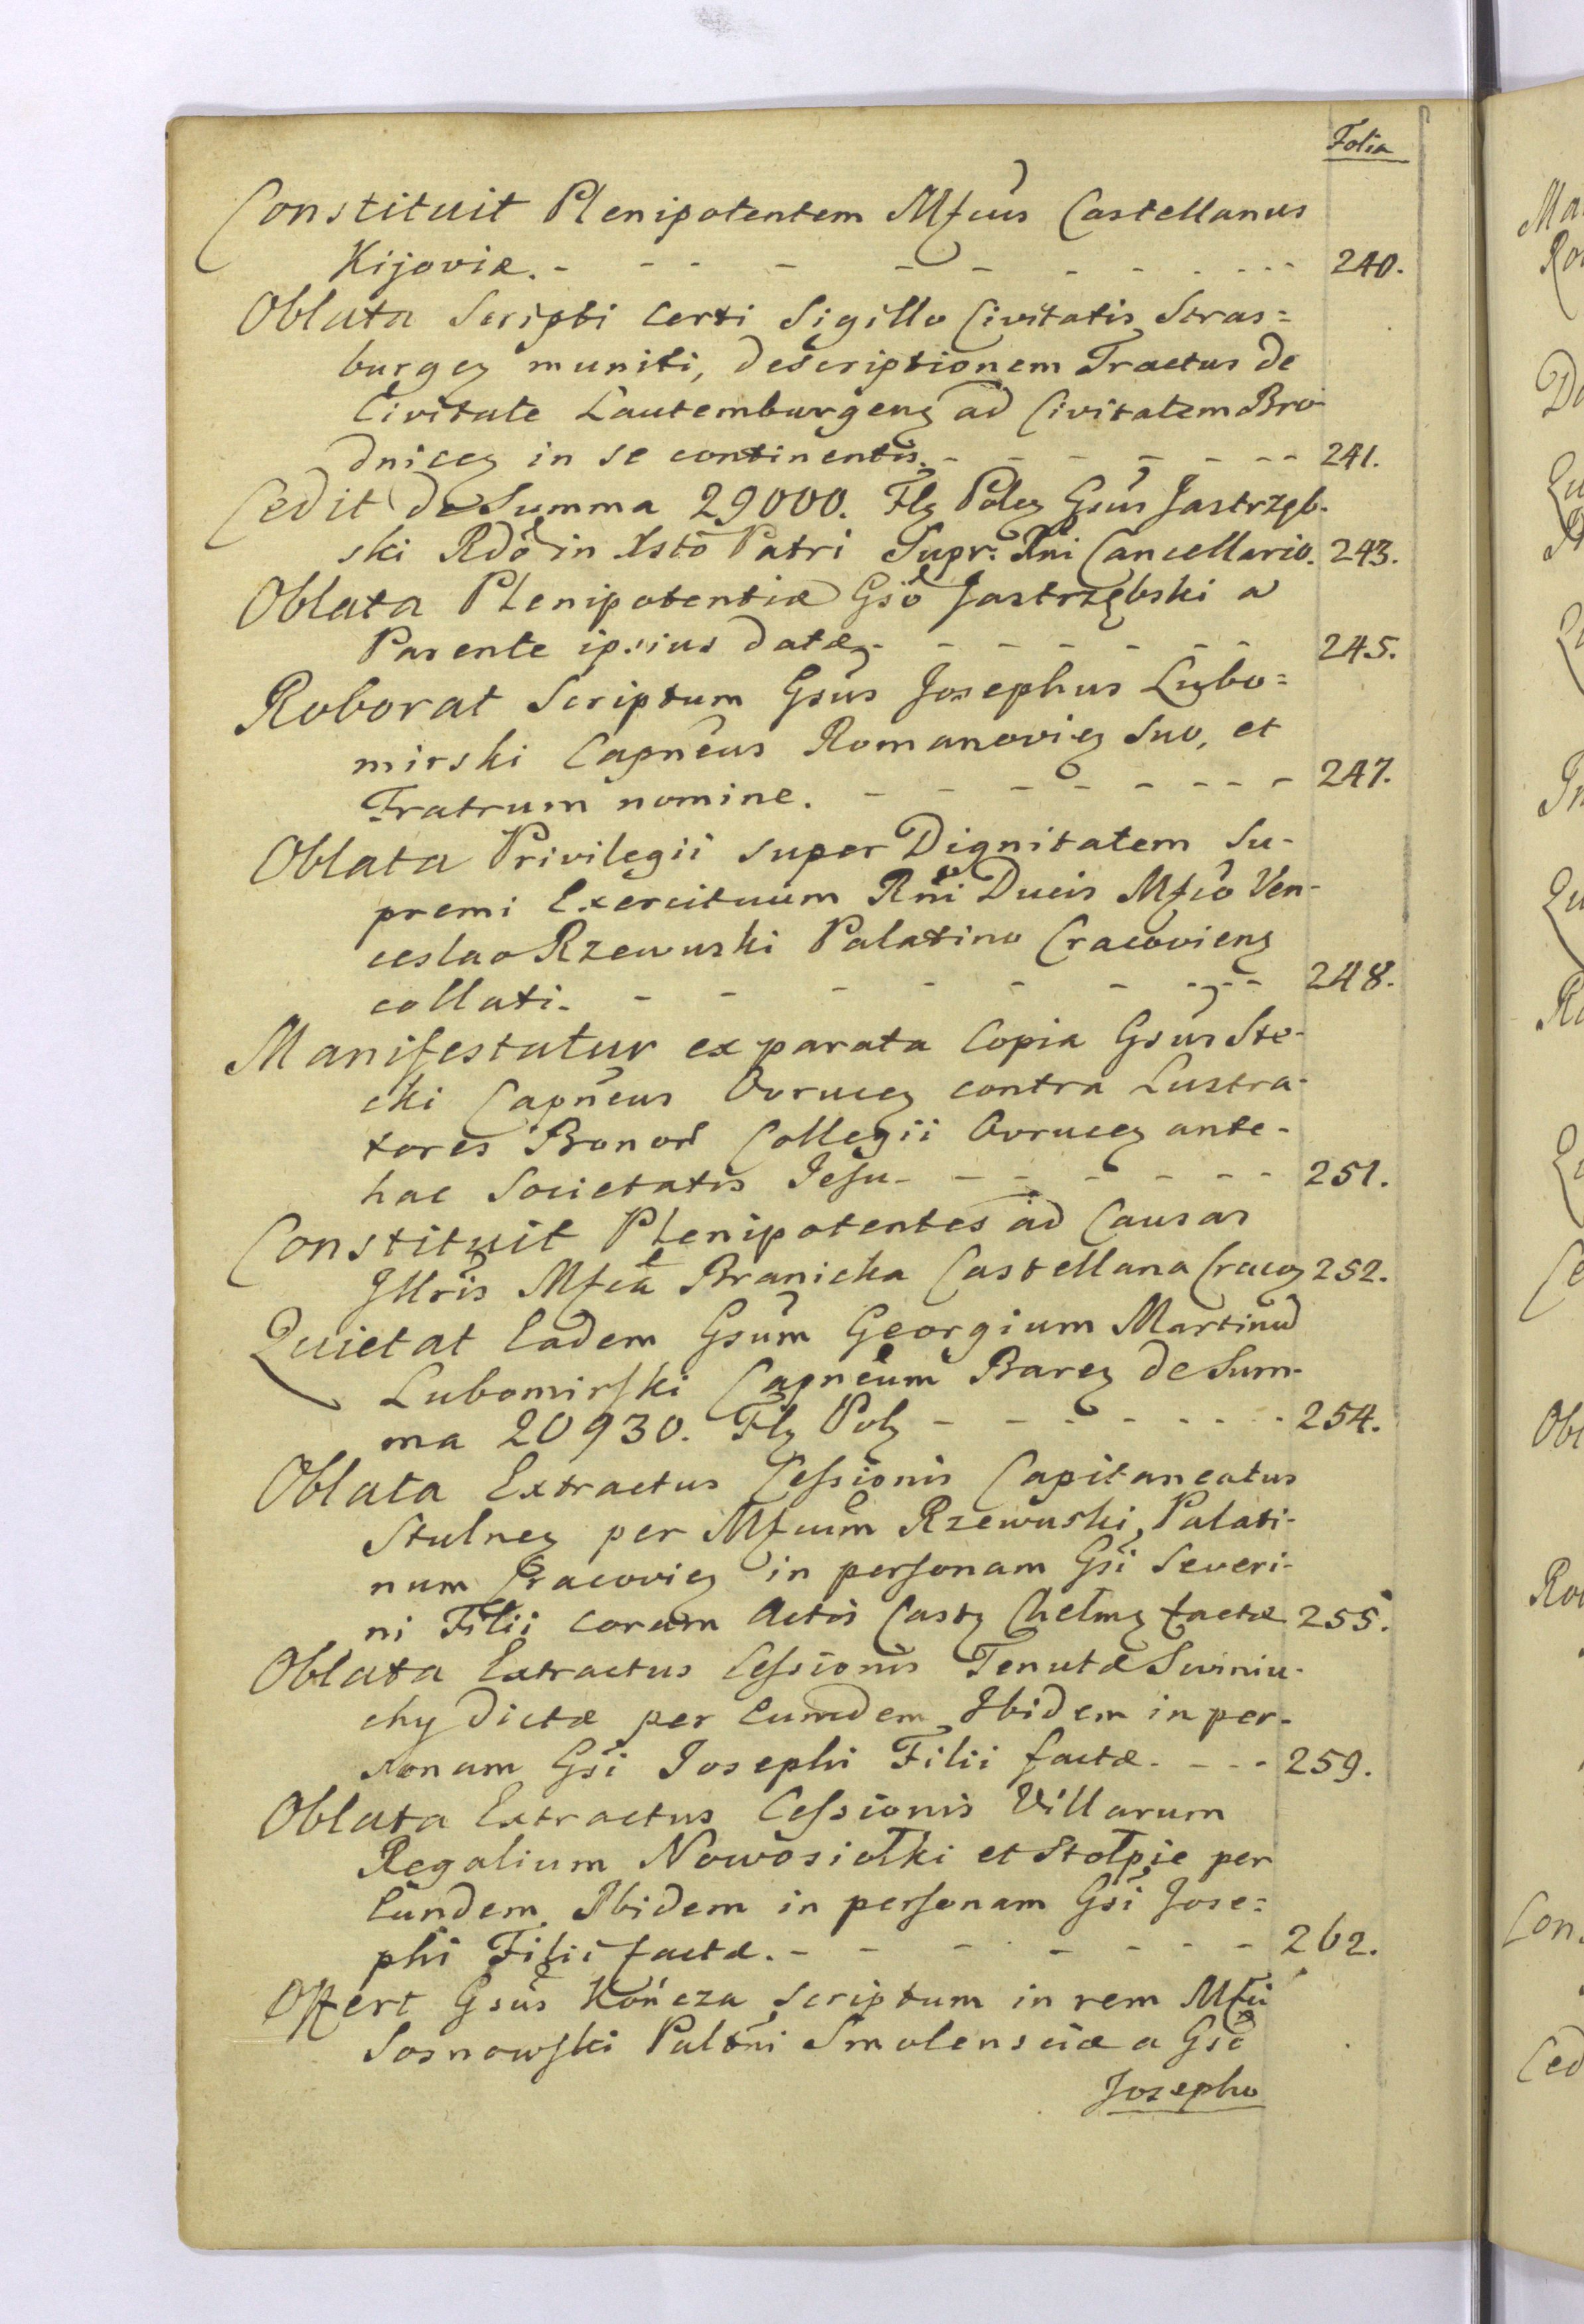 Folia
Constituit Plenipotentem Mfcus Castellanus
Kijoviæ. - - - - - - - - - - - 240.
Oblata Scripti Certi Sigillo Civitatis Stras=
burgeȝ muniti, descriptionem Tractus de
Civitate Lautemburgenȝ ad Civitatem Bro-
dniceȝ in se continentis. - - - - - - - - 241.
Cedit de Summa 29000. Flȝ Poleȝ Gsus Jastrzęb-
ski Rdo in Xsto Patri Supr: Rni Cancellario. 243.
Oblata Plenipotentiæ Gso Jastrzębski a
Parente ipsius datæ. - - - - - - 245.
Roborat Scriptum Gsus Josephus Lubo=
mirski Capneus Romanovieȝ Suo, et
Fratrum nomine. - - - - - - - - 247.
Oblata Privilegii super Dignitatem Su-
premi Exercituum Rni Ducis Mfco Ven-
ceslao Rzewuski Palatino Cracovienȝ
collati. - - - - - - - - - 248.
Manifestatur ex parata Copia Gsus Ste-
cki Capneus Ovruceȝ contra Lustra-
tores Bonor Collegii Ovruceȝ ante-
hac Societatis Jesu - - - - - - - 251.
Constituit Plenipotentes ad Causas
Jllris Mfca Branicka Castellana Cracoȝ 252.
Quietat Eadem Gsum Georgium Martinū
Lubomirski Capneum Bareȝ de Sum-
ma 20930. Flȝ Polȝ - - - - - - - 254.
Oblata Extractus Cessionis Capitaneatus
Stulneȝ per Mfcum Rzewuski, Palati-
num Cracovieȝ in personam Gsi Severi-
ni Filii coram Actis Castȝ Chelmȝ factæ 255.
Oblata Extractus Cessionis Tenutæ Swiniu-
chy dictæ per Eumdem Ibidem in per-
sonam Gsi Josephi Filii factæ. - - - 259.
Oblata Extractus Cessionis Villarum
Regalium Nowosiołki et Stołpie per
Eundem Ibidem in personam Gsi Jose=
phi Filii factæ. - - - - - - - 262.
Offert Gsus Kończa Scriptum in rem Mfci
Sosnowski Paltni Smolensciæ a Gso
Josepho